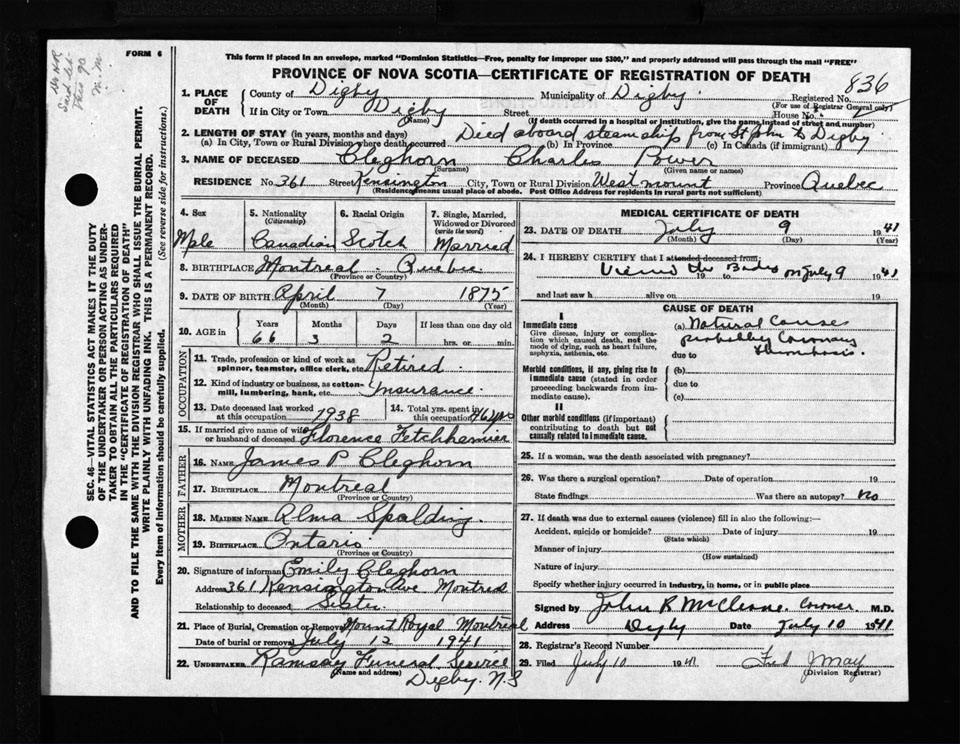 FORM 6
This form if placed in an envelope, marked "Dominion Statistics—Free, penalty for improper use $300," and properly addressed will pass through the mail "FREE"
PROVINCE OF NOVA SCOTIA—CERTIFICATE OF REGISTRATION OF DEATH
836
1. PLACE OF DEATH County of Digby Municipality of Digby Registered No.
(For use of Registrar General only)
If in City or Town Digby Street House No.
(Name) (If death occurred in a hospital or institution, give the name instead of street and number)
2. LENGTH OF STAY (in years, months and days) Died aboard steamship from St John to Digby
(a) In City, Town or Rural Division where death occurred (b) In Province (c) In Canada (if immigrant)
3. NAME OF DECEASED Cleghorn Charles Power
(Surname) (Given name or names)
RESIDENCE No. 361 Street Kensington City, Town or Rural Division Westmount Province Quebec
(Residence means usual place of abode. Post Office Address for residents in rural parts not sufficient)
4. Sex 5. Nationality 6. Racial Origin 7. Single, Married,
(Citizenship) Widowed or Divorced
(write the word)
Male Canadian Scotch Married
8. BIRTHPLACE Montreal Quebec
(Province or Country)
9. DATE OF BIRTH April 7 1875
(Month) (Day) (Year)
10. AGE in Years Months Days If less than one day old
66 3 2 hrs. or min.
OCCUPATION
11. Trade, profession or kind of work as
spinner, teamster, office clerk, etc. Retired
12. Kind of industry or business, as cotton-
mill, lumbering, bank, etc. Insurance
13. Date deceased last worked 14. Total yrs. spent in
at this occupation 1938 this occupation
15. If married give name of wife
or husband of deceased Florence
FATHER
16. NAME James P Cleghorn
17. BIRTHPLACE Montreal
(Province or Country)
MOTHER
18. MAIDEN NAME Alma Spalding
19. BIRTHPLACE Ontario
(Province or Country)
20. Signature of informant Emily Cleghorn
Address 361 Kensington Ave Montreal
Relationship to deceased Sister
21. Place of Burial, Cremation or Removal Mount Royal Montreal
Date of burial or removal July 12 1941
22. UNDERTAKER Ramsay Funeral Service
(Name and address) Digby. N.S
MEDICAL CERTIFICATE OF DEATH
23. DATE OF DEATH July 9 1941
(Month) (Day) (Year)
24. I HEREBY CERTIFY that I attended deceased from:
Viewed the Body on July 9 1941
19 to
and last saw h alive on 19
CAUSE OF DEATH
I
Immediate cause (a) Natural Causes
Give disease, injury or complica-
tion which caused death, not the
mode of dying, such as heart failure,
asphyxia, asthenia, etc.
probably Coronary
due to Thrombosis
Morbid conditions, if any, giving rise to
immediate cause (stated in order
proceeding backwards from im-
mediate cause).
(b)
due to
(c)
II
Other morbid conditions (if important)
contributing to death but not
causally related to immediate cause.
25. If a woman, was the death associated with pregnancy?
26. Was there a surgical operation? Date of operation 19
State findings Was there an autopsy? No
27. If death was due to external causes (violence) fill in also the following:—
Accident, suicide or homicide? Date of injury 19
(State which)
Manner of injury
(How sustained)
Nature of injury
Specify whether injury occurred in industry, in home, or in public place
Signed by John R Coroner. M.D.
Address Digby Date July 10 1941
28. Registrar's Record Number
29. Filed July 10 1941 Fred J May
(Division Registrar)
SEC. 46—VITAL STATISTICS ACT MAKES IT THE DUTY
OF THE UNDERTAKER OR PERSON ACTING AS UNDER-
TAKER TO OBTAIN ALL THE PARTICULARS REQUIRED
IN THE "CERTIFICATE OF REGISTRATION OF DEATH"
AND TO FILE THE SAME WITH THE DIVISION REGISTRAR WHO SHALL ISSUE THE BURIAL PERMIT.
WRITE PLAINLY WITH UNFADING INK. THIS IS A PERMANENT RECORD.
Every item of information should be carefully supplied. (See reverse side for instructions.)